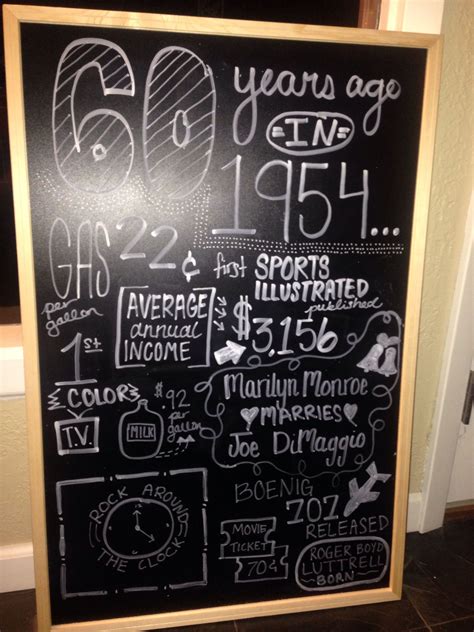 60 years ago
IN
1954...
GAS 22¢
per
gallon
first SPORTS
ILLUSTRATED
published
AVERAGE
annual
INCOME
$3,156
1st
COLOR
T.V.
$.92
per
gallon
MILK
Marilyn Monroe
MARRIES
Joe DiMaggio
ROCK AROUND
THE CLOCK
BOENIG
707
RELEASED
MOVIE
TICKET
70¢
ROGER BOYD
LUTTRELL
BORN